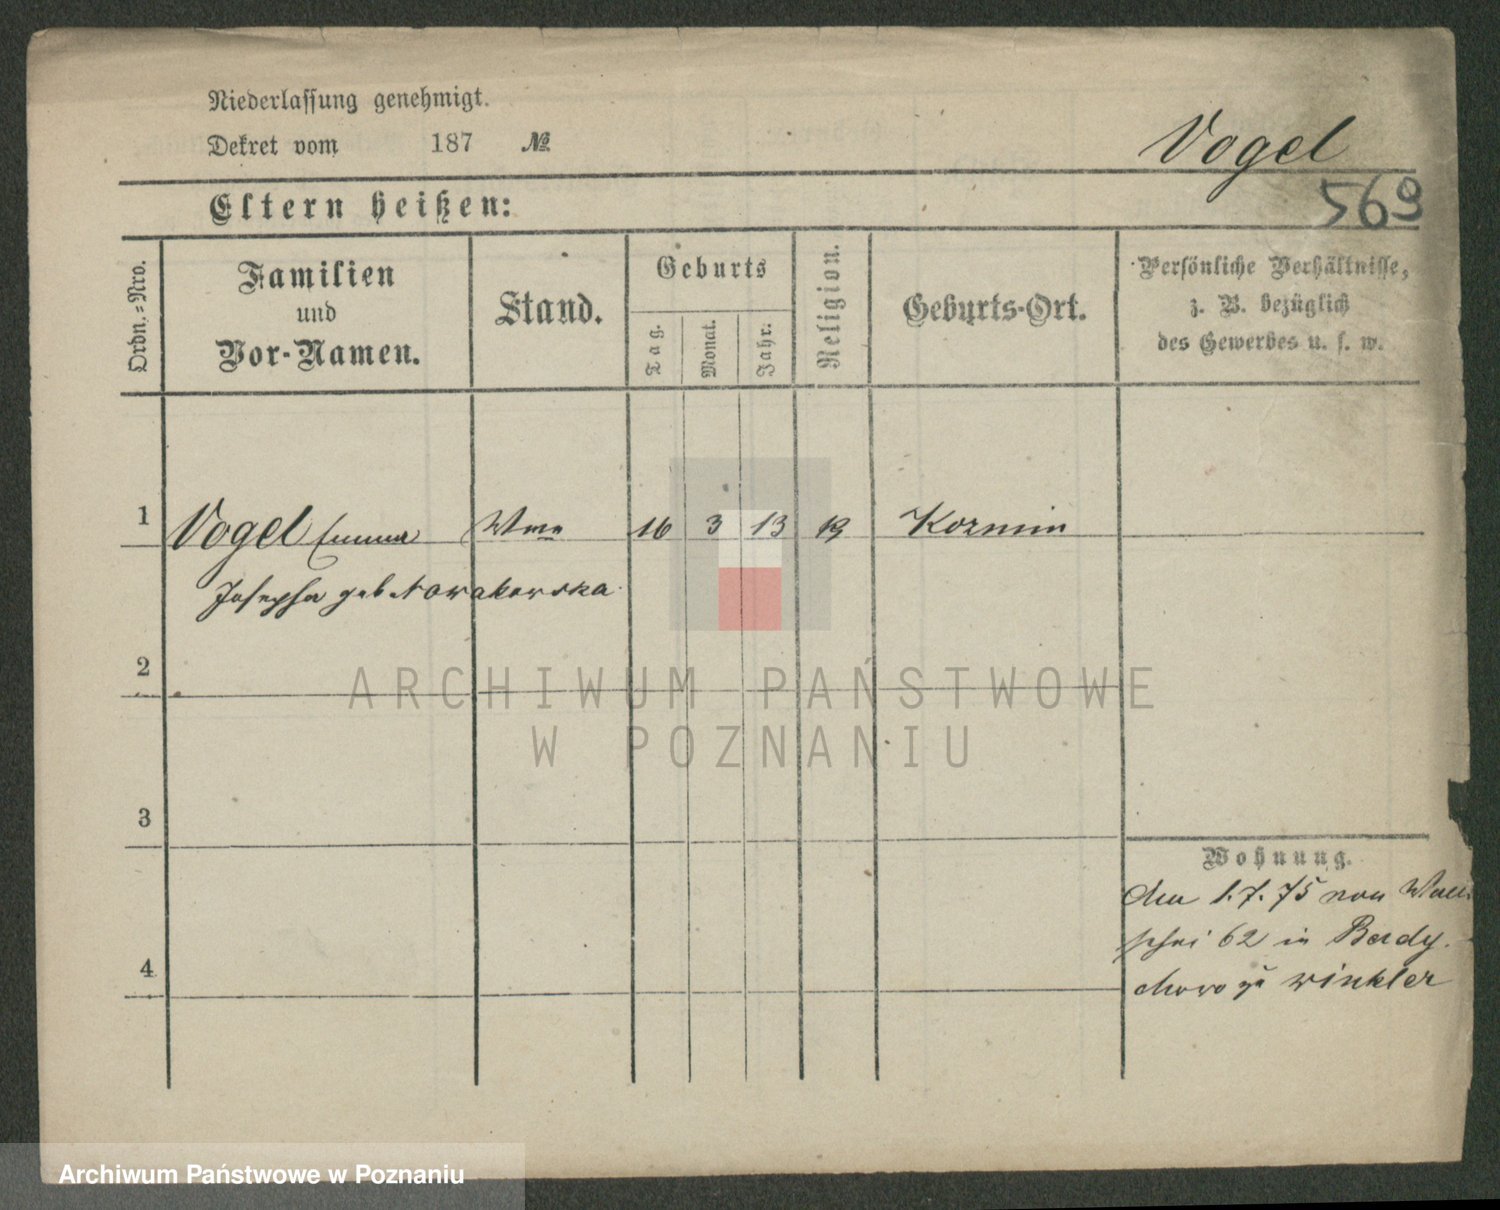 Niederlassung genehmigt.
Dekret vom 187 №
Vogel
569
Eltern heißen:
Ordn.=Nro.
Familien
und
Vor-Namen.
Stand.
Geburts
Tag.
Monat.
Jahr.
Religion.
Geburts-Ort.
Persönliche Verhältnisse,
z. B. bezüglich
des Gewerbes u. s. w.
1 Vogel Emma Wwe 16 3 13 Kozmin
Josepha geb Nowakowska
2
ARCHIWUM PAŃSTWOWE
W POZNANIU
3
Wohnung.
1.7.75 von Walli
schei 62 in Berdy.
chowo zu Winkler
4
Archiwum Państwowe w Poznaniu